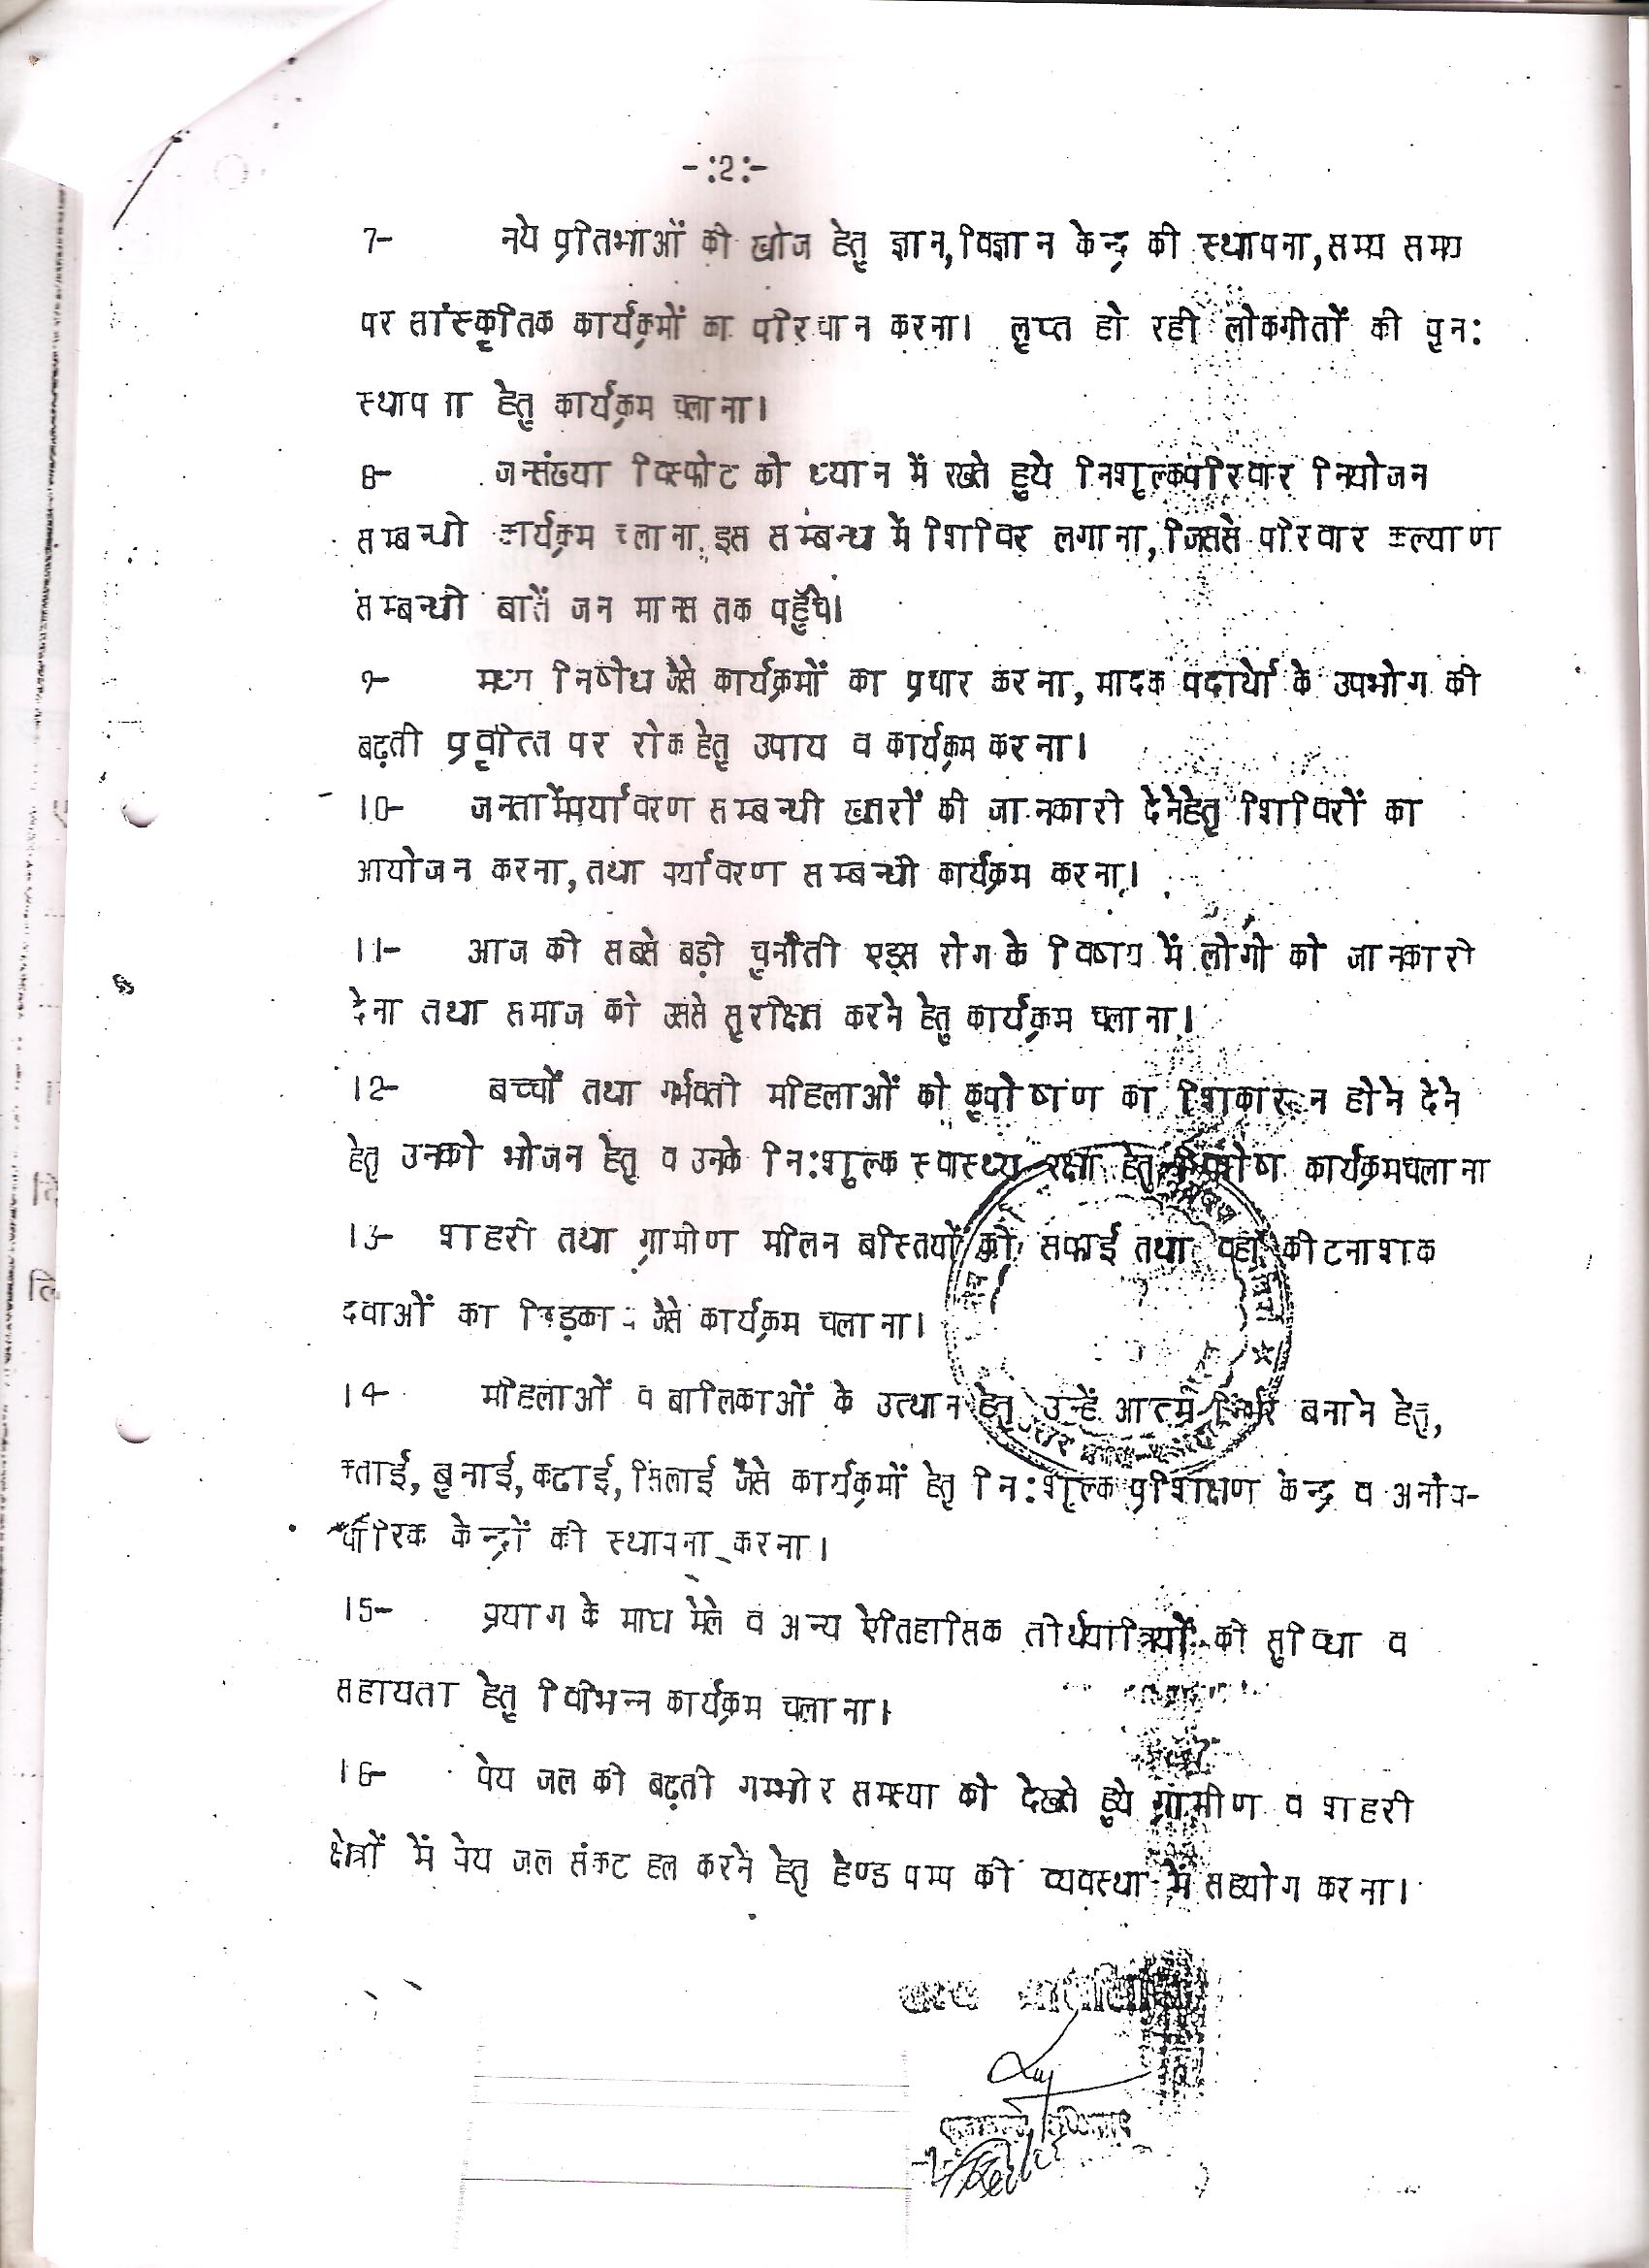 -:2:-
7- नये प्रतिभाओं की खोज हेतु ज्ञान,विज्ञान केन्द्र की स्थापना,समय समय
पर सांस्कृतिक कार्यक्रमों का परिधान करना। लुप्त हो रही लोकगीतों की पुन:
स्थापना हेतु कार्यक्रम चलाना।
8- जनसंख्या विस्फोट को ध्यान में रखते हुये निशुल्कपरिवार नियोजन
सम्बन्धी कार्यक्रम चलाना, इस सम्बन्ध में शिविर लगाना,जिससे परिवार कल्याण
सम्बन्धी बातें जन मानस तक पहुँचे।
9- मद्य निषेध जैसे कार्यक्रमों का प्रचार करना,मादक पदार्थो के उपभोग की
बढ़ती प्रवृत्ति पर रोक हेतु उपाय व कार्यक्रम करना।
10- जनता में पर्यावरण सम्बन्धी खतरों की जानकारी देने हेतु शिविरों का
आयोजन करना,तथा पर्यावरण सम्बन्धी कार्यक्रम करना।
11- आज की सबसे बड़ी चुनौती एड्स रोग के विषय में लोगो को जानकारी
देना तथा समाज को उससे सुरक्षित करने हेतु कार्यक्रम चलाना।
12- बच्चों तथा गर्भवती महिलाओं को कुपोषण का शिकार न होने देने
हेतु उनको भोजन हेतु व उनके नि:शुल्क स्वास्थ्य रक्षा हेतु विशेष कार्यक्रमचलाना
13- शहरी तथा ग्रामीण मलिन बस्तियों की सफाई तथा वहाँ कीटनाशक
दवाओं का छिड़काव जैसे कार्यक्रम चलाना।
14- महिलाओं व बालिकाओं के उत्थान हेतु उन्हें आत्म निर्भर बनाने हेतु,
कताई,बुनाई,कढाई,सिलाई जैसे कार्यक्रमों हेतु नि:शुल्क प्रशिक्षण केन्द्र व अनौप-
चारिक केन्द्रों की स्थापना करना।
15- प्रयाग के माघ मेले व अन्य ऐतिहासिक तीर्थयात्रियों को सुविधा व
सहायता हेतु विभिन्न कार्यक्रम चलाना।
16- पेय जल की बढ़ती गम्भीर समस्या को देखते हुये ग्रामीण व शहरी
क्षेत्रों में पेय जल संकट हल करने हेतु हैण्ड पम्प की व्यवस्था में सहयोग करना।